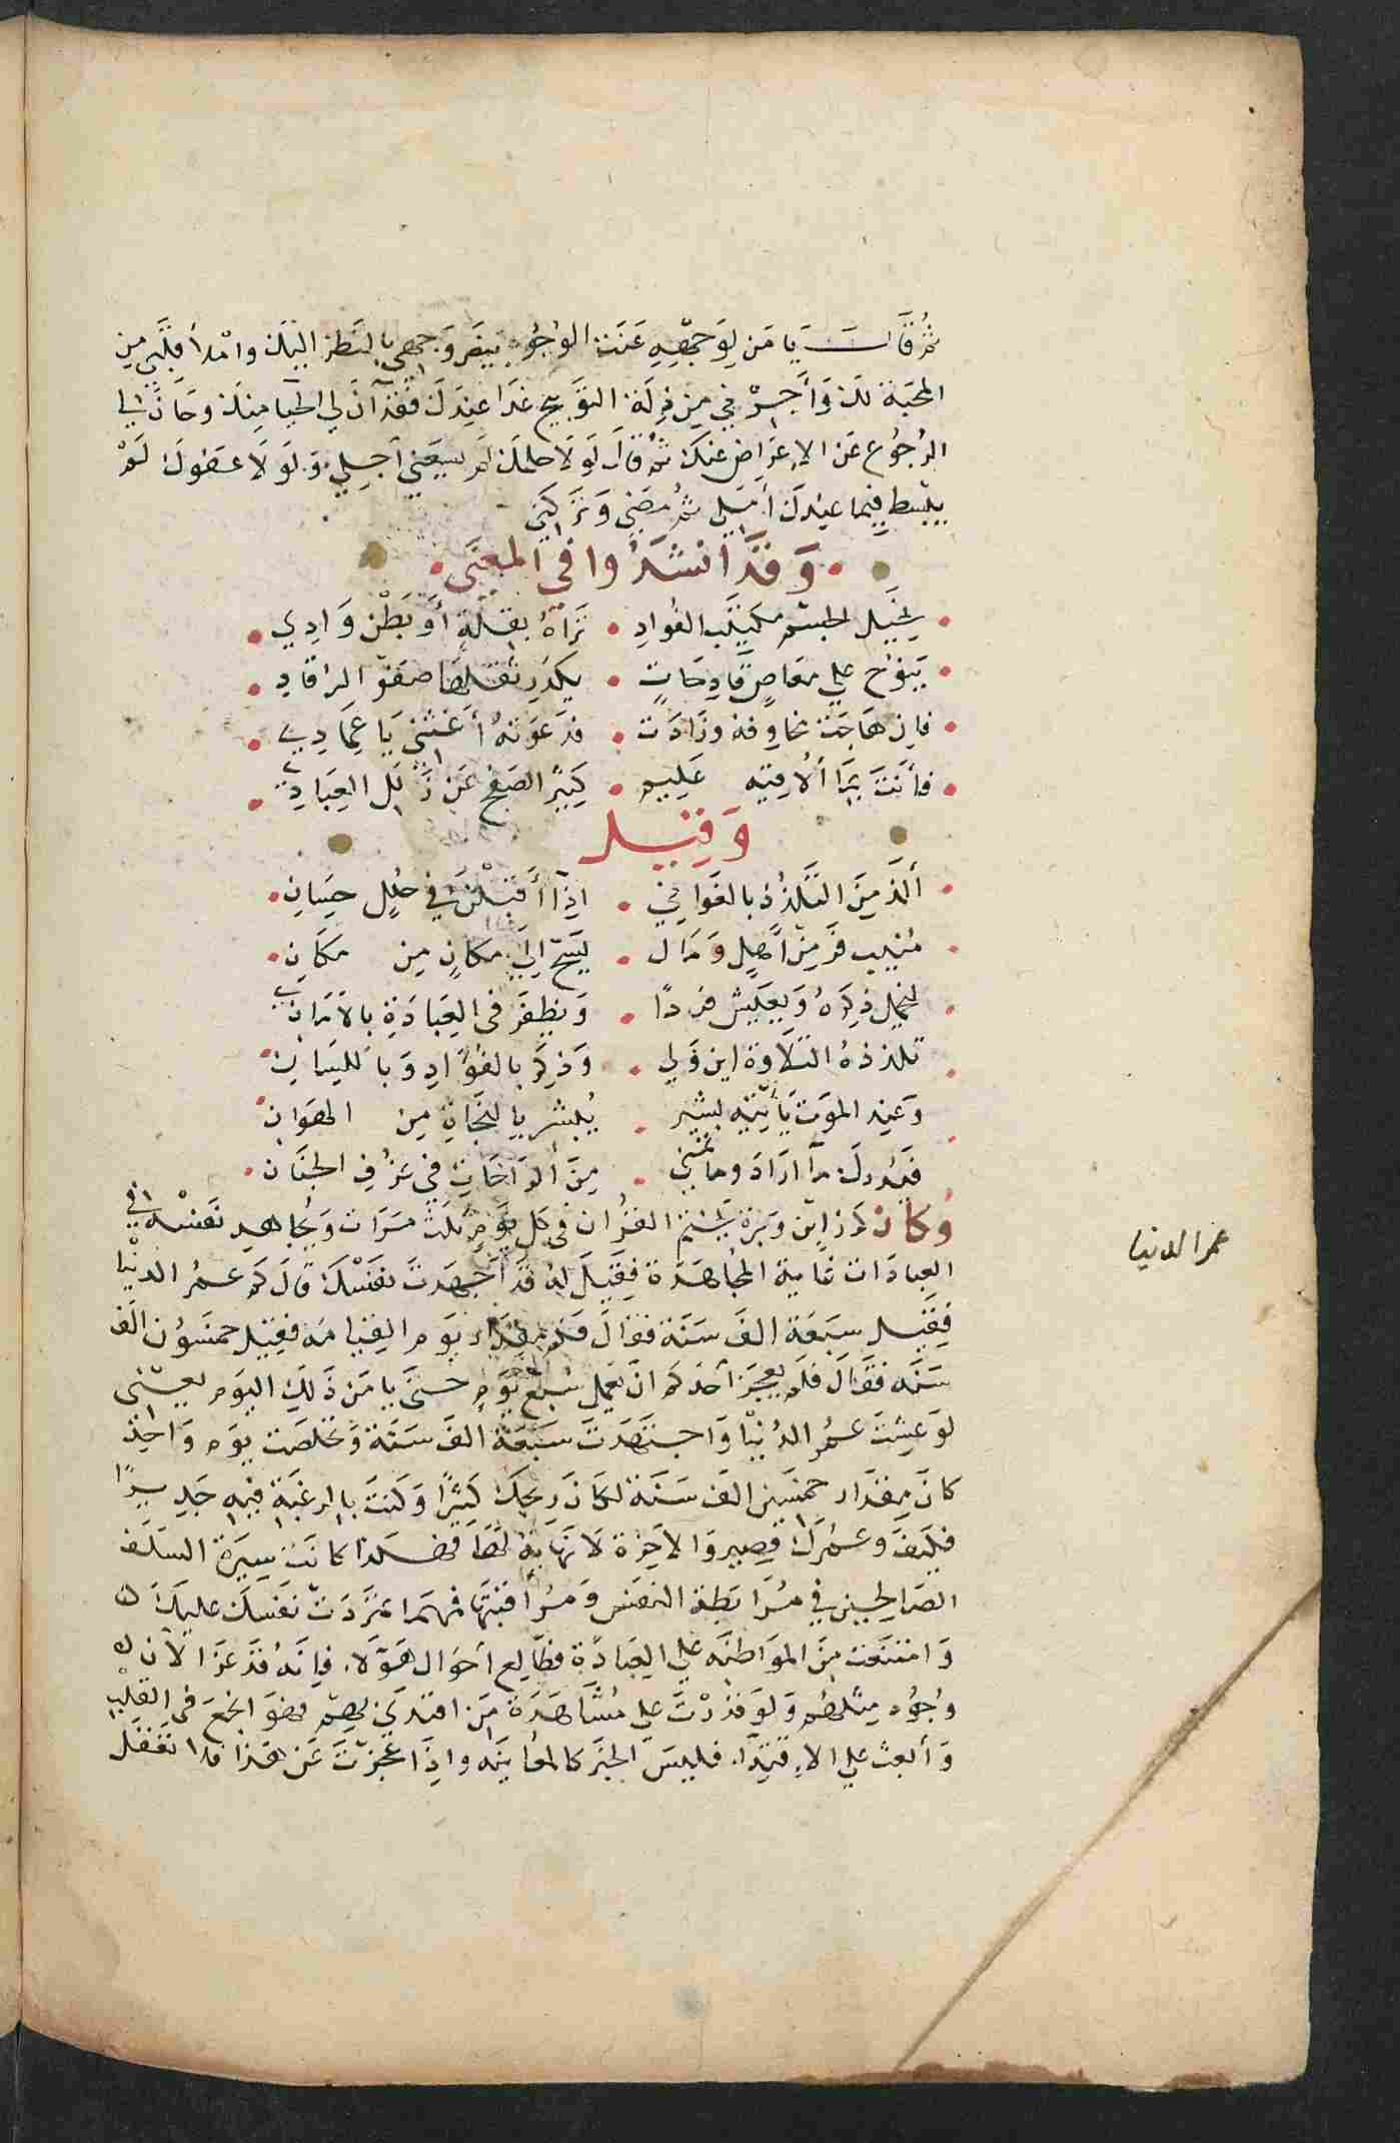 ثُمَّ قَالَ يَا مَن لِوَجْهِهِ عَنَت الوُجُوه بيض وَجهي بالنظر اليك واملأ قلبي من
المحبة لك وَأجِرْني من ذِلَّة التوبيخ غدا عندك فقد آن لي الحيا منك وحَانَ لي
الرُجُوع عَن الاِعْرَاض عنك ثُم قال لَولَا حلمك لم يسَعني أجلي وَلَولَا عفوك لَمْ
ينبسط فيما عندك أملي ثم مضى وَتركني
وَقَد أنشدُوا في المعنَى
نحيل الجسم مكتئب الفُوادِ تَرَاهُ بقلةٍ أو بَطْن وَادِي
يَنوح علي معاصٍ قادحَاتٍ يكدر ثقلها صفو الرقادِ
فان هَاجَت مخاوفه وزادت فدَعوته أغثني يَا عِمَادِي
فأنتَ بمَا ألاقيه عَلِيم كثير الصفح عَن زَلل العِبَادِي
وَقِيلَ
ألذ مِنَ التلذذ بالغواني اذِا أقبلْنَ في حُلل حِسَانِ
مُنيب فرّ مِن أهلٍ وَمَال يَسيح الي مكانٍ مِن مكَانِ
ليخمل ذكرهُ وَيعيش فردًا وَيظفر في العِبَادَةِ بالأمَانِي
تلذذهُ التلاوة اين وَلي وَذكر بالفؤادِ وَباللسَانِ
وَعِند الموَت يَأتيه بشير يُبشر بالنجَاةِ مِن الهوَانِ
فيدرك مآ ارَادَ وما تمني مِنَ ألرَاحَاتِ في غرف الجنَانِ
وُكان كرز بن وبرة يختم القرُان في كل يوَم ثَلث مرات وَيُجاهِد نَفسْه في
العِبادَات غاية المجُاهَدَة فقيل له قَد أجهدت نفسْك قالَ كَم عمُر الدنيا
فقيل سبعَة الف سَنَة فقَالَ فكم مقدار يوَم القيامَه فقيل خمسُون الف
سَنَه فقَالَ فلم يعجز أحَدكم ان يعمل سُبع يوَم حتىَ يامَن ذَلِك اليوَم يعني
لَو عِشت عمُر الدُنيا وَاجتهَدتَ سَبعَة الف سَنَة وَتخلصَت يوَم وَاحِد
كانَ مِقدار خمسين الف سَنَة لكان ربحك كثيرًا وَكنت بالرغبَةِ فيه جَديرًا
فكيفَ وعمُرك قصِير وَالاخِرة لا نهاية لهَا فهكذا كانت سِيَرة السَلف
الصَالحِين في مُرَابَطة النفس وَمُرَاقبَتها فمهمَا تمَرَدَت نفسَك عليك
وَامتنَعَت مِن الموَاظبَه علي العِبادَة فطَالِع أحوَال هؤلآء فاِنَه قَد عَزَ الآن
وُجُود مِثلهم وَلَو قدرْتَ علي مُشاهَدَة مَن اقتدَي بهِم فهَو انجَع في القلب
وَأبعث علي الاِقتِدآء فليسَ الخبَر كالمعُاينَه واذَا عجزت عَن هَذا فلا تَغفل
عمر الدنيا